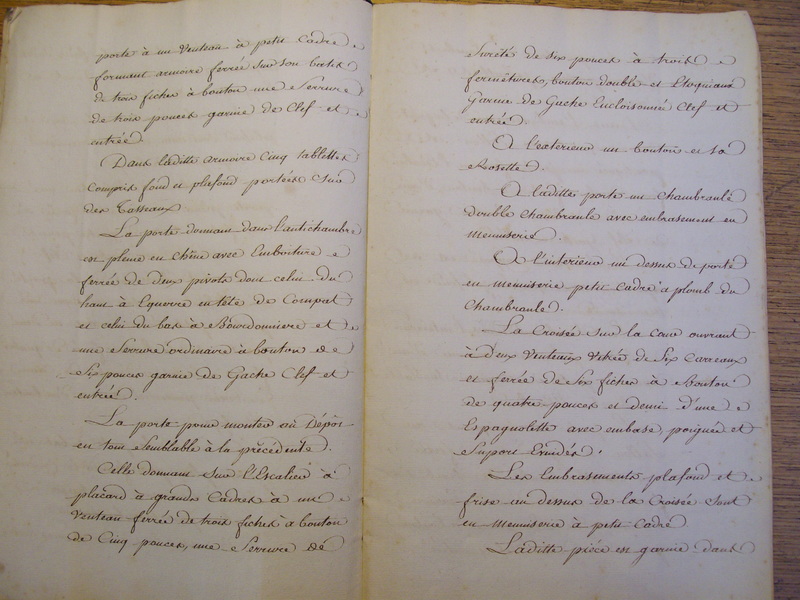 porte à un Venteau à petit Cadre
formant armoire ferrée sur son batis
de trois fiches à bouton une Serrure
de trois pouces garnie de Clef et
entrée.
Dans laditte armoire Cinq tablettes
Compris fond et plafond portées sur
des Tasseaux
La porte donnant dans l'antichambre
est pleine en chêne avec Emboiture
ferrée de deux pivots dont celui du
haut à Equerre en tête de Compas
et celui du bas à Bourdonniere et
une Serrure ordinaire à bouton de
Six pouces garnie de Gache Clef et
entrée.
La porte pour monter au Dépôt
en tout Semblable à la précédente.
Celle donnant sur l'Escalier à
placard à grands Cadres à un
Venteau ferrée de trois fiches à bouton
de Cinq pouces, une Serrure de
Sureté de six pouces à trois
fermetures, bouton double et Etoquiaux
Garnie de Gache Encloisonnée Clef et
entrée.
A l'exterieur un bouton et sa
Rosette.
A laditte porte un Chambranle
double Chambranle avec embrasement en
Menuiserie.
A l'interieur un dessus de porte
en menuiserie petit Cadre à plomb du
Chambranle.
La Croisée sur la cour ouvrant
à deux Venteaux Vitrés de Six Carreaux
et ferrée de Six fiches à Bouton
de quatre pouces et demi d'une
Espagnolette avec embase, poignée et
Suport Evuidés.
Les Embrasements plafond et
frise au dessus de la Croisée sont
en Menuiserie à petit Cadre
Laditte piéce est garnie dans